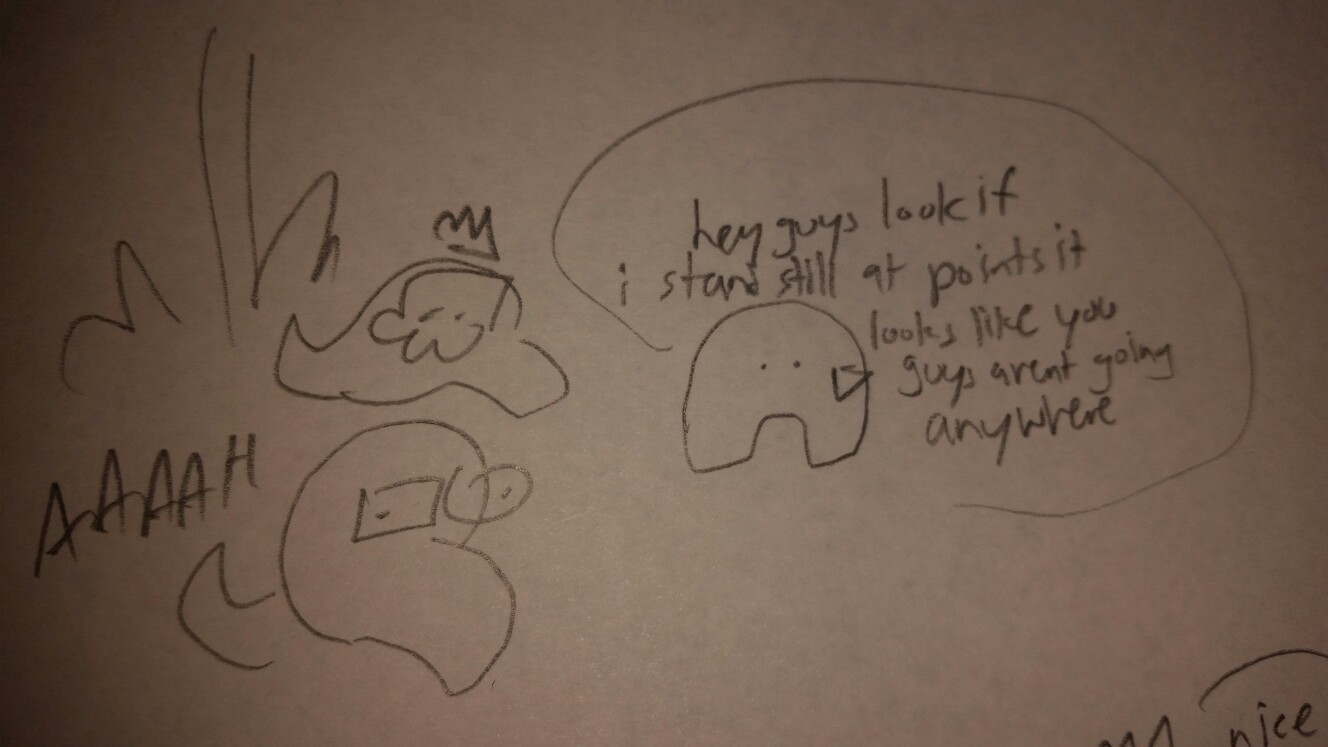 hey guys look if
i stand still at points it
looks like you
guys arent going
anywhere
AAAAH
nice